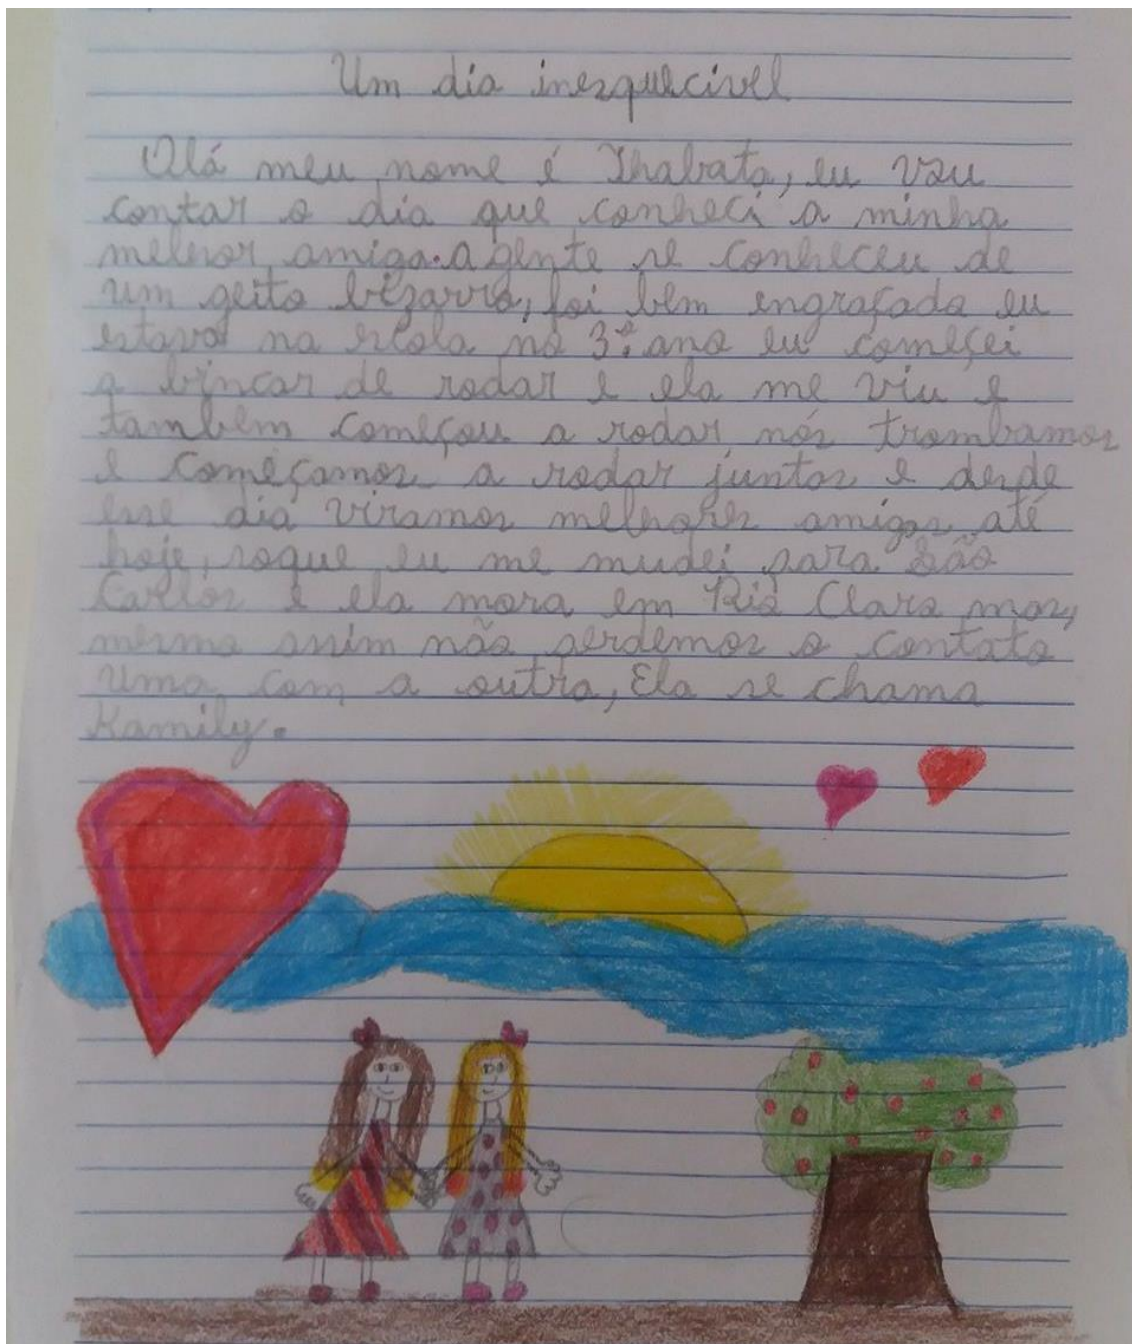 Um dia inesquecivel
Olá meu nome é Thabata, eu vou
contar o dia que conheci a minha
melhor amiga. a gente se conheceu de
um geito bizarro, foi bem engraçado eu
estava na escola no 3º ano eu começei
a brincar de rodar e ela me viu e
também começou a rodar nós trombamos
e começamos a rodar juntas e desde
esse dia viramos melhores amigas até
hoje, soque eu me mudei para São
Carlos e ela mora em Rio Claro mas,
mesmo assim não perdemos o contato
uma com a outra, Ela se chama
Kamily.